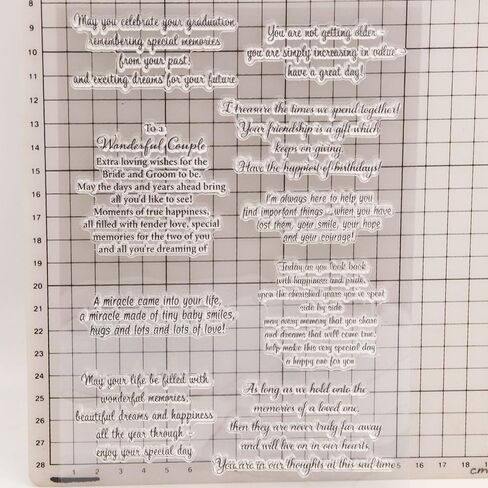 May you celebrate your graduation
remembering special memories
from your past;
and exciting dreams for your future.
You are not getting older -
you are simply increasing in value -
have a great day!
I treasure the times we spend together!
Your friendship is a gift which
keeps on giving.
Have the happiest of birthdays!
To a
Wonderful Couple
Extra loving wishes for the
Bride and Groom to be.
May the days and years ahead bring
all you'd like to see!
Moments of true happiness,
all filled with tender love, special
memories for the two of you
and all you're dreaming of
I'm always here to help you
find important things - when you have
lost them, your smile, your hope
and your courage!
Today as you look back
with happiness and pride,
upon the cherished years you've spent
side by side
may every memory that you share
and dreams that will come true,
help make this very special day
a happy one for you
A miracle came into your life,
a miracle made of tiny baby smiles,
hugs and lots and lots of love!
May your life be filled with
wonderful memories,
beautiful dreams and happiness
all the year through -
enjoy your special day
As long as we hold onto the
memories of a loved one,
then they are never truly far away
and will live on in our hearts.
You are in our thoughts at this sad time
8
9
10
11
12
13
14
15
16
17
18
19
20
21
22
23
24
25
26
27
28
1 2 3 4 5 6
15 16 17 18
cm